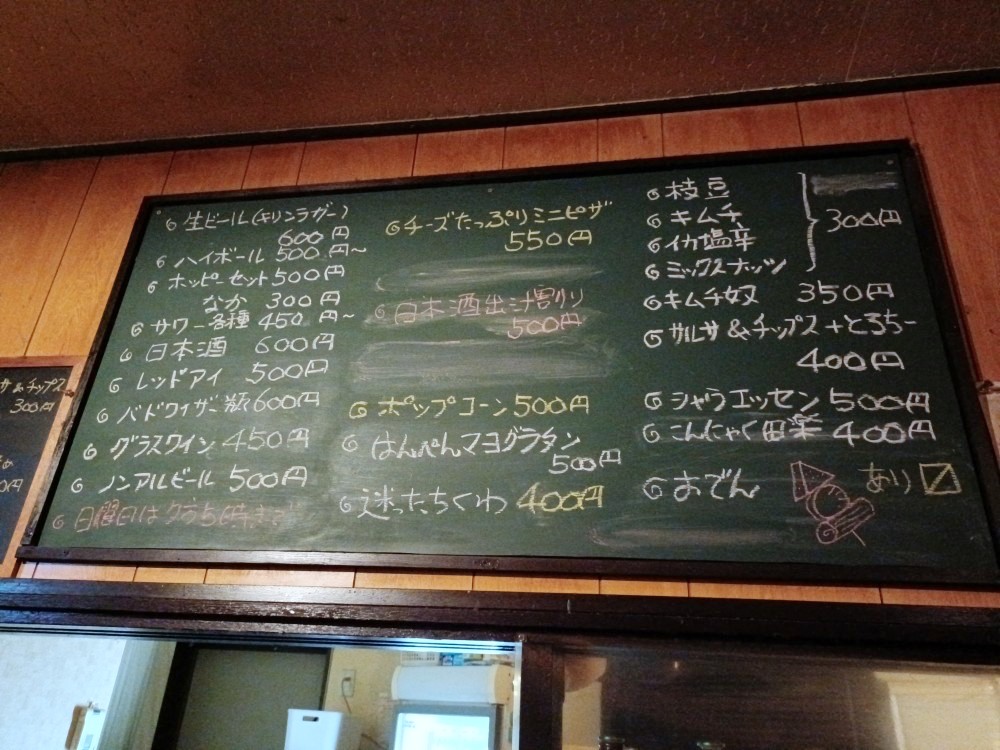 生ビール(キリンラガー)
600円
ハイボール 500円~
ホッピーセット500円
なか 300円
サワー各種 450円~
日本酒 600円
レッドアイ 500円
バドワイザー瓶600円
グラスワイン 450円
ノンアルビール 500円
日曜日は夕
チーズたっぷりミニピザ
550円
日本酒出汁割り
500円
ポップコーン500円
はんぺんマヨグラタン
500円
迷ったらちくわ 400円
枝豆
キムチ
イカ塩辛
ミックスナッツ
300円
キムチ奴 350円
サルサ&チップス+とろちー
400円
シャウエッセン 500円
こんにゃく田楽 400円
おでん あり
サ&チップス
300円